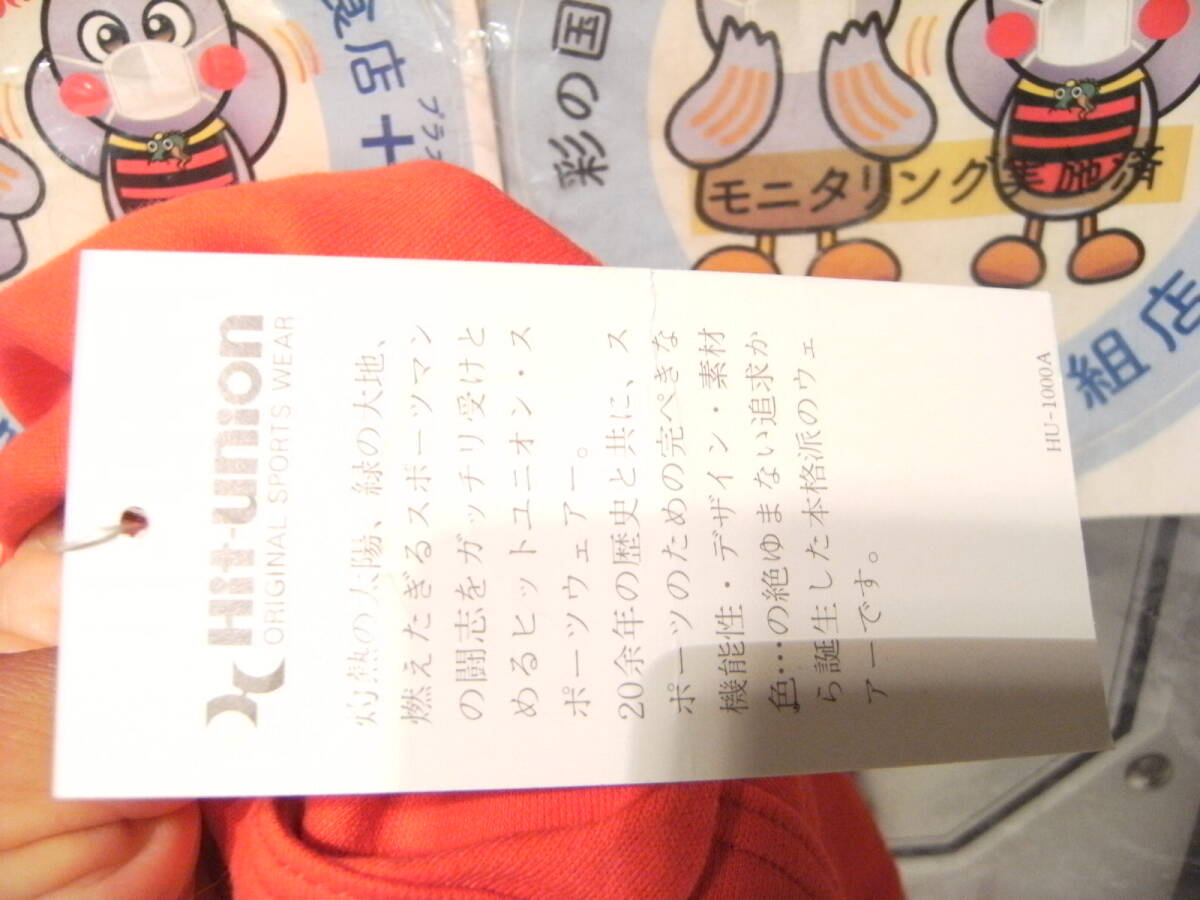 Hit-union
ORIGINAL SPORTS WEAR
灼熱の太陽、緑の大地、
燃えたぎるスポーツマン
の闘志をガッチリ受けと
めるヒットユニオン・ス
ポーツウェアー。
20余年の歴史と共に、ス
ポーツのための完ぺきな
機能性・デザイン・素材
色…の絶ゆまない追求か
ら誕生した本格派のウェ
アーです。
HU-1000A
食店+
彩の国
モニタリング実施済
組店